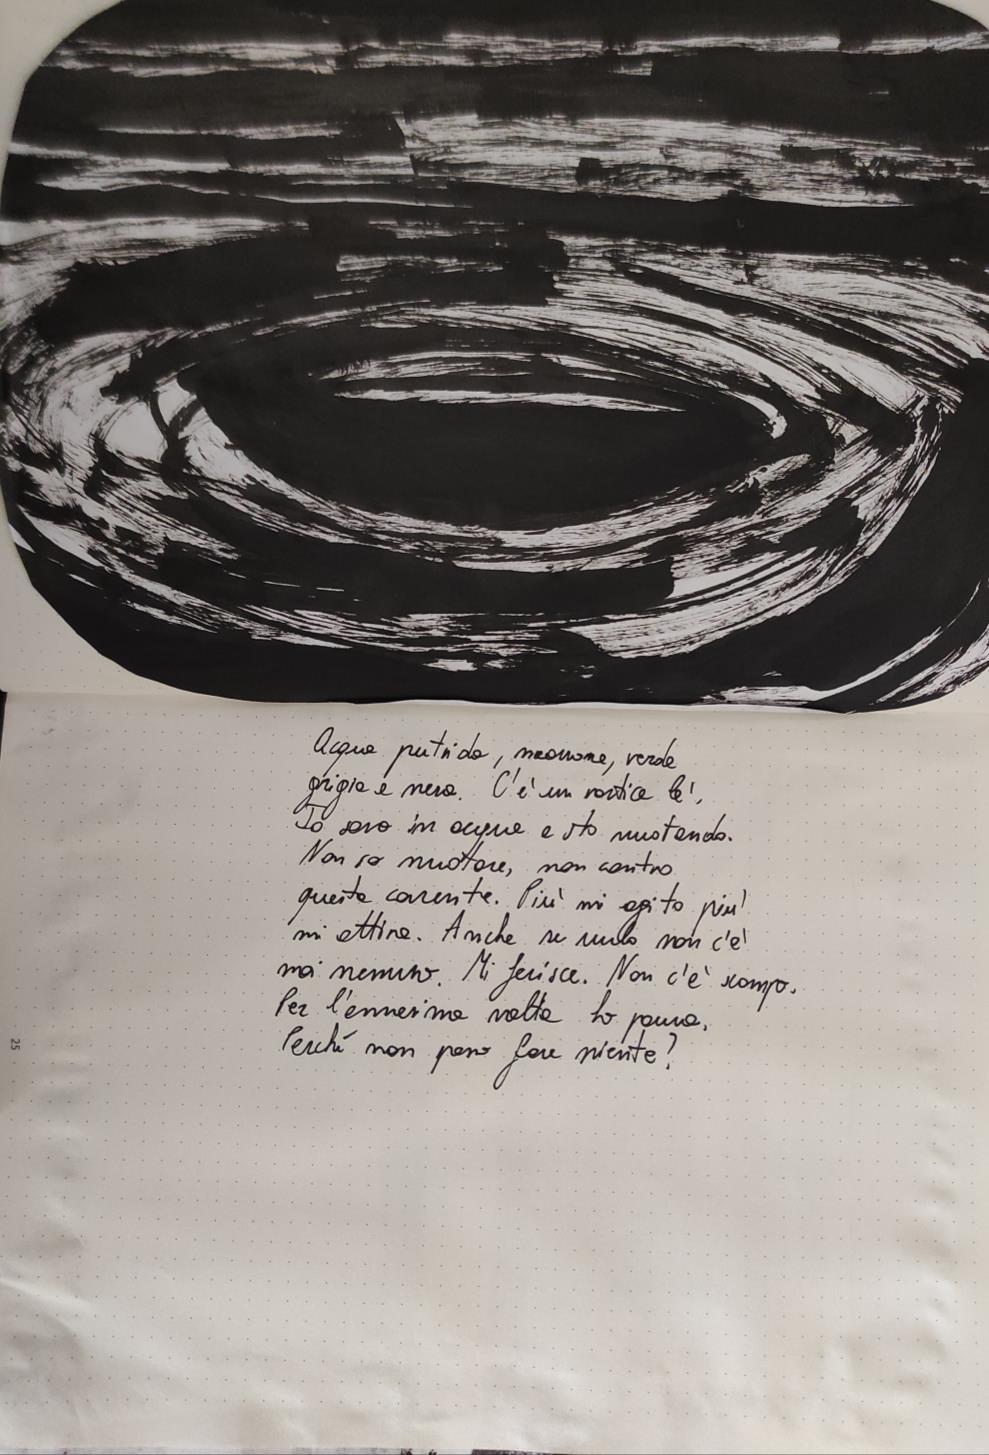 Acqua putrida, marrone, verde
grigia e nera. C'è un vortice là,
Io sono in acqua e sto nuotando.
Non so nuotare, non contro
questa corrente. Più mi agito più
mi attira. Anche se urlo non c'è
mai nessuno. Mi ferisce. Non c'è scampo.
Per l'ennesima volta ho paura,
Perché non posso fare niente?
25